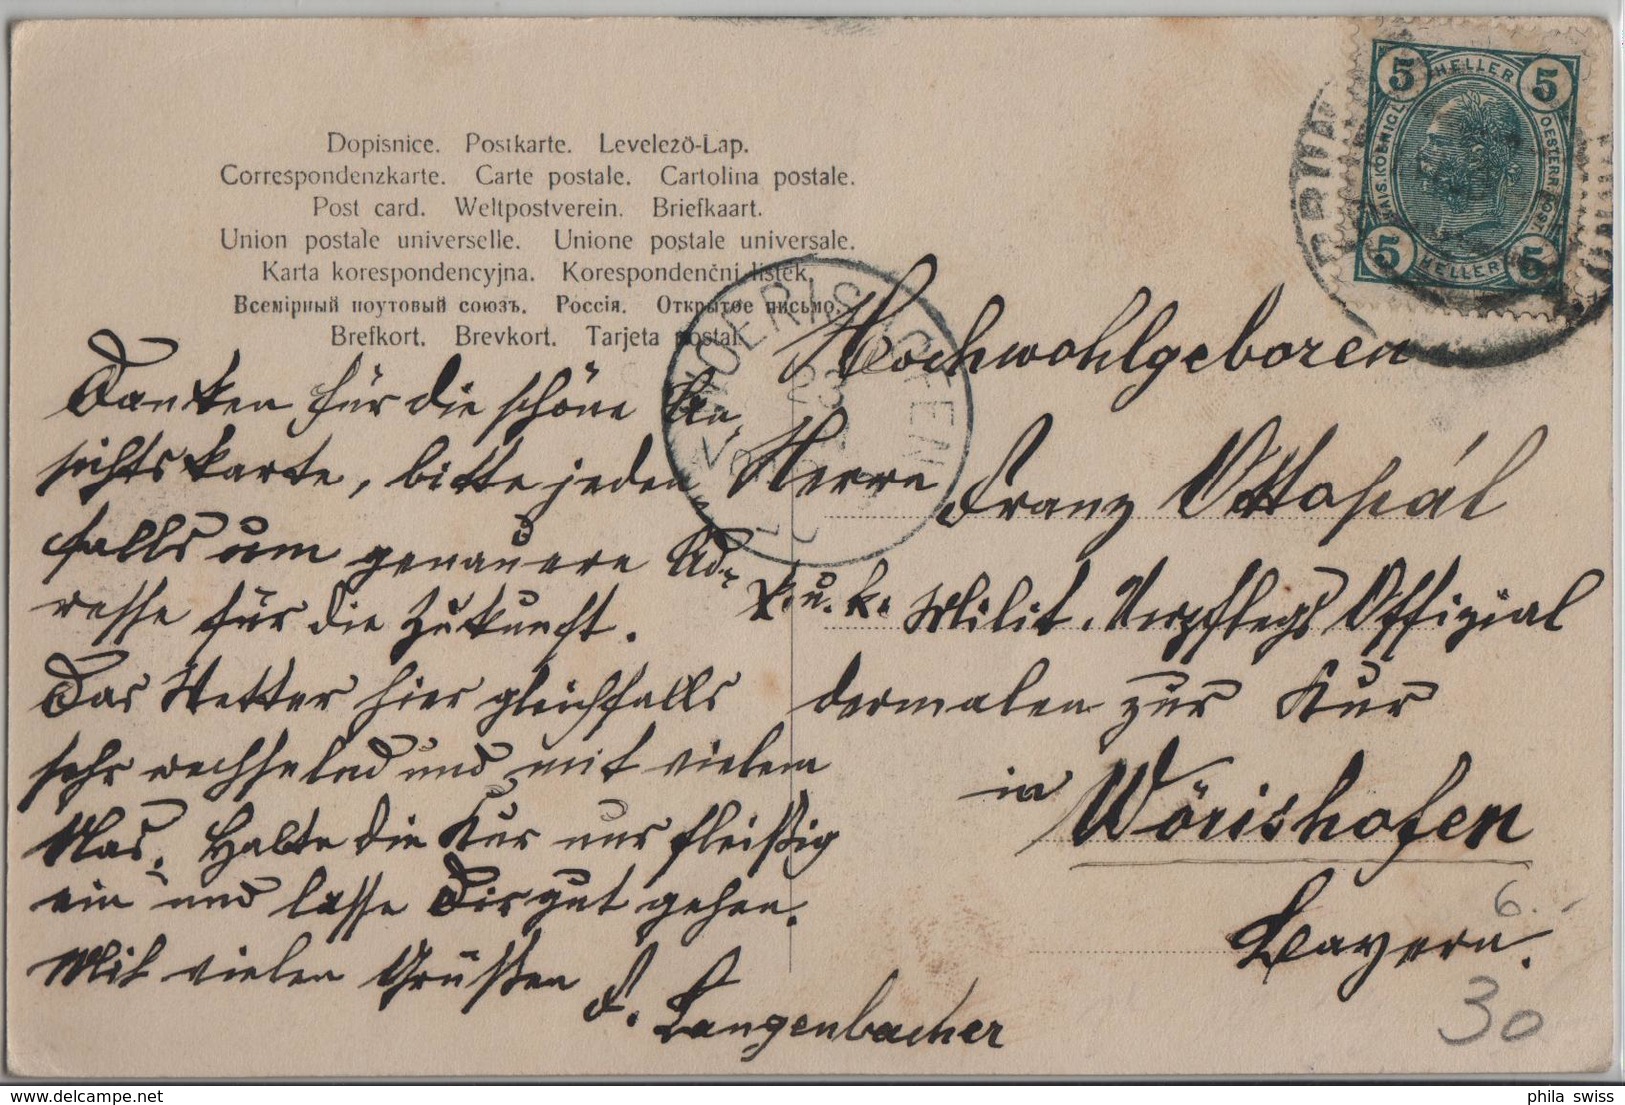 Dopisnice. Postkarte. Levelező-Lap.
Correspondenzkarte. Carte postale. Cartolina postale.
Post card. Weltpostverein. Briefkaart.
Union postale universelle. Unione postale universale.
Karta korespondencyjna. Korespondenční lístek.
Всемірный поутовый союзъ. Россія. Открытое письмо.
Brefkort. Brevkort. Tarjeta postal.
5 HELLER 5
KAIS. KOENIGL. OESTERR. POST
5 HELLER 5
WOERISHOFEN
Danken für die schöne An-
sichtskarte, bitte jeden-
falls um genauere Ad-
resse für die Zukunft.
Das Wetter hier gleichfalls
sehr wechselnd und mit vielem
Nas. Halte die Kur nur fleißig
ein und lasse Dir gut gehen.
Mit vielen Grüßen
F. Langenbacher
Hochwohlgeboren
Herrn Franz Ottopál
k. u. k. Milit. Verpflegs Offizial
dermalen zur Kur
in Wörishofen
Bayern.
6.-
30
phila swiss